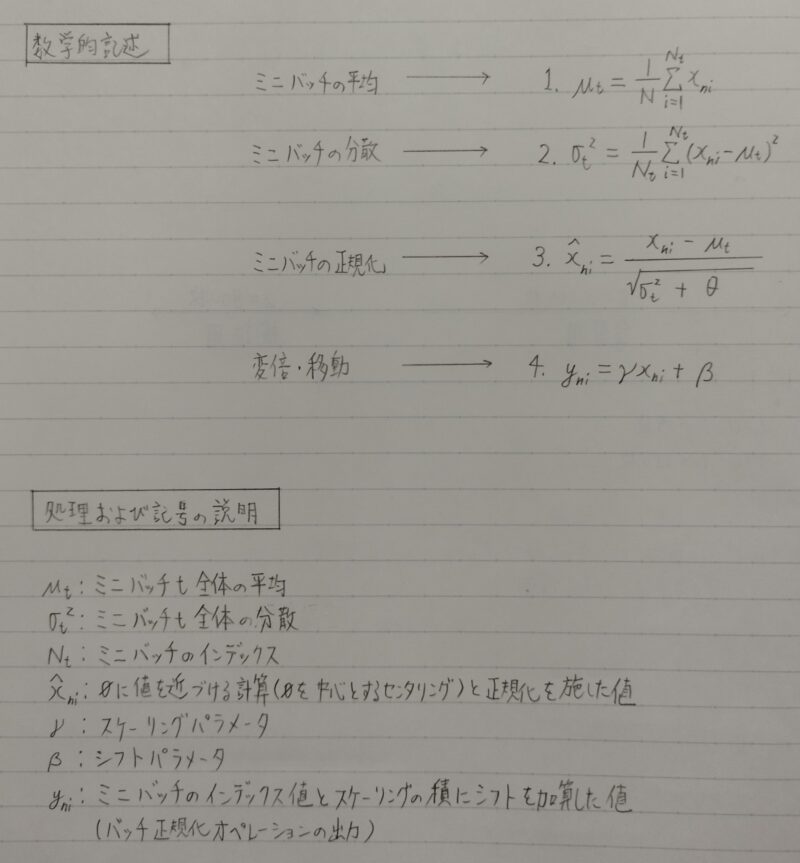 数学的記述
ミニバッチの平均 → 1. μₜ = 1/N Σ_{i=1}^{Nₜ} x_{ni}
ミニバッチの分散 → 2. σₜ² = 1/Nₜ Σ_{i=1}^{Nₜ} (x_{ni} − μₜ)²
ミニバッチの正規化 → 3. x̂_{ni} = (x_{ni} − μₜ) / √(σₜ² + θ)
変倍・移動 → 4. y_{ni} = γx_{ni} + β
処理および記号の説明
μₜ : ミニバッチt全体の平均
σₜ² : ミニバッチt全体の分散
Nₜ : ミニバッチのインデックス
x̂_{ni} : 0に値を近づける計算(0を中心とするセンタリング)と正規化を施した値
γ : スケーリングパラメータ
β : シフトパラメータ
y_{ni} : ミニバッチのインデックス値とスケーリングの積にシフトを加算した値
(バッチ正規化オペレーションの出力)